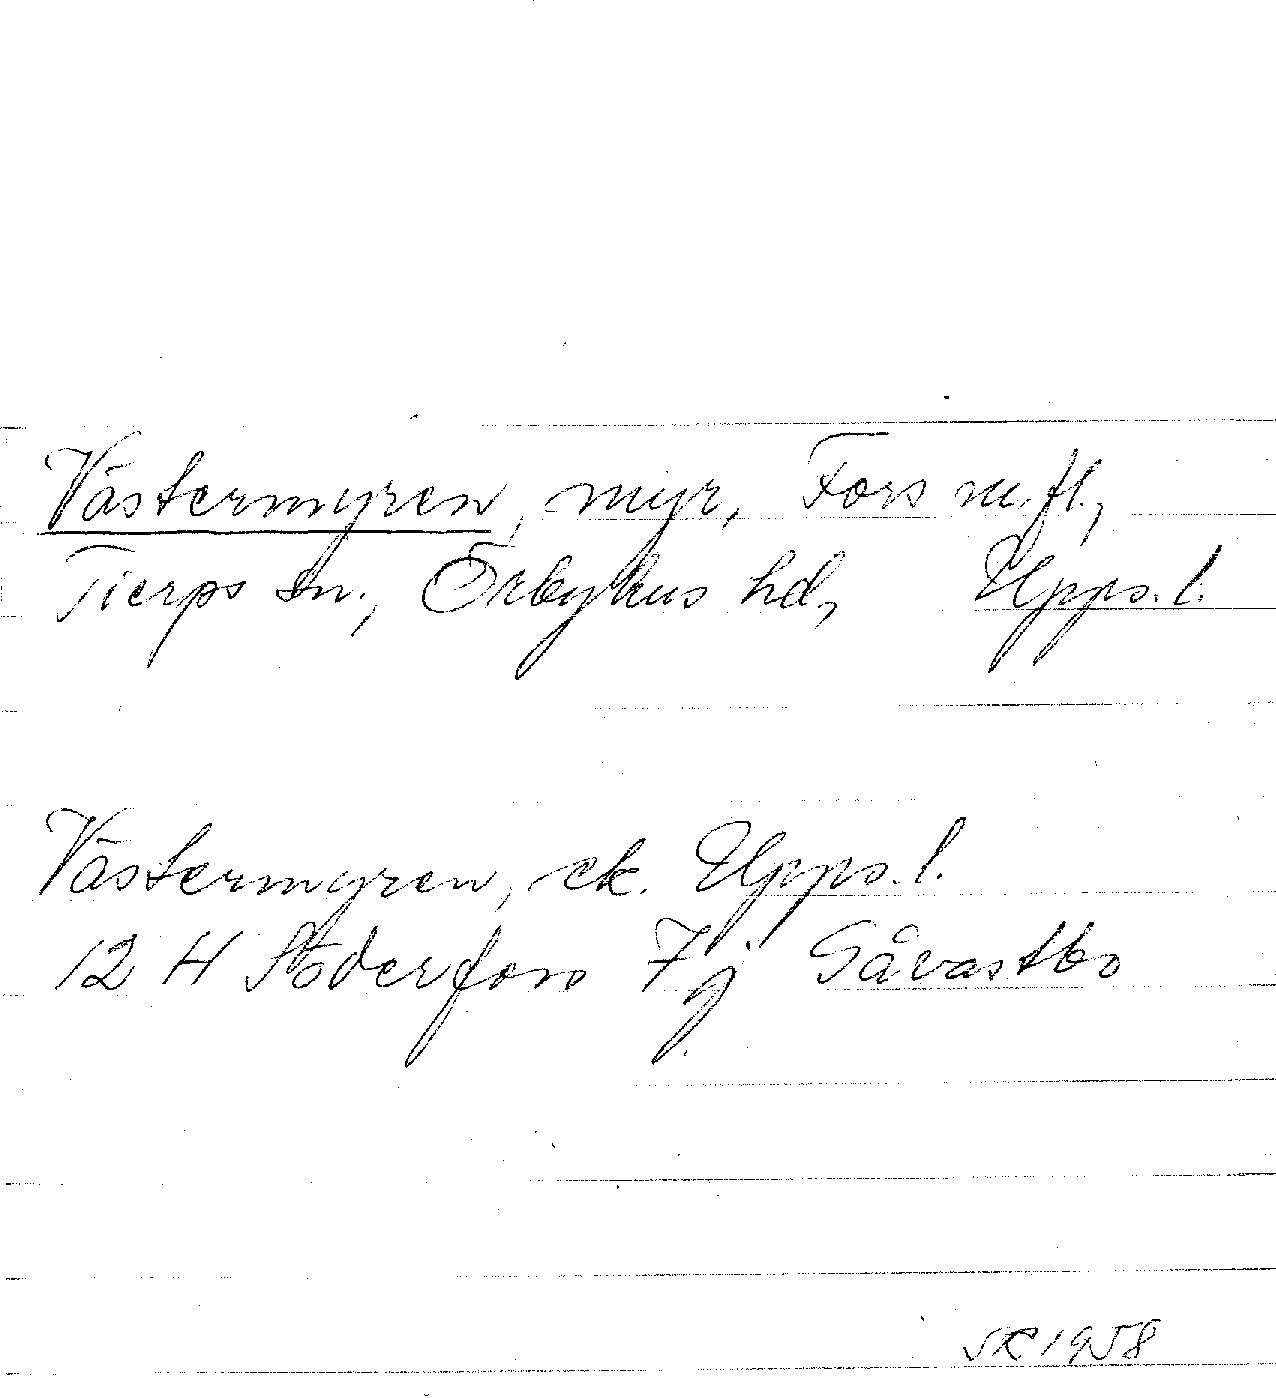 Västermyren, myr, Fors m.fl.,
Tierps sn., Örbyhus hd, Upps. l.
Västermyren, ek. Upps. l.
12 H Söderfors 7 j Gåvastbo
SR 1958